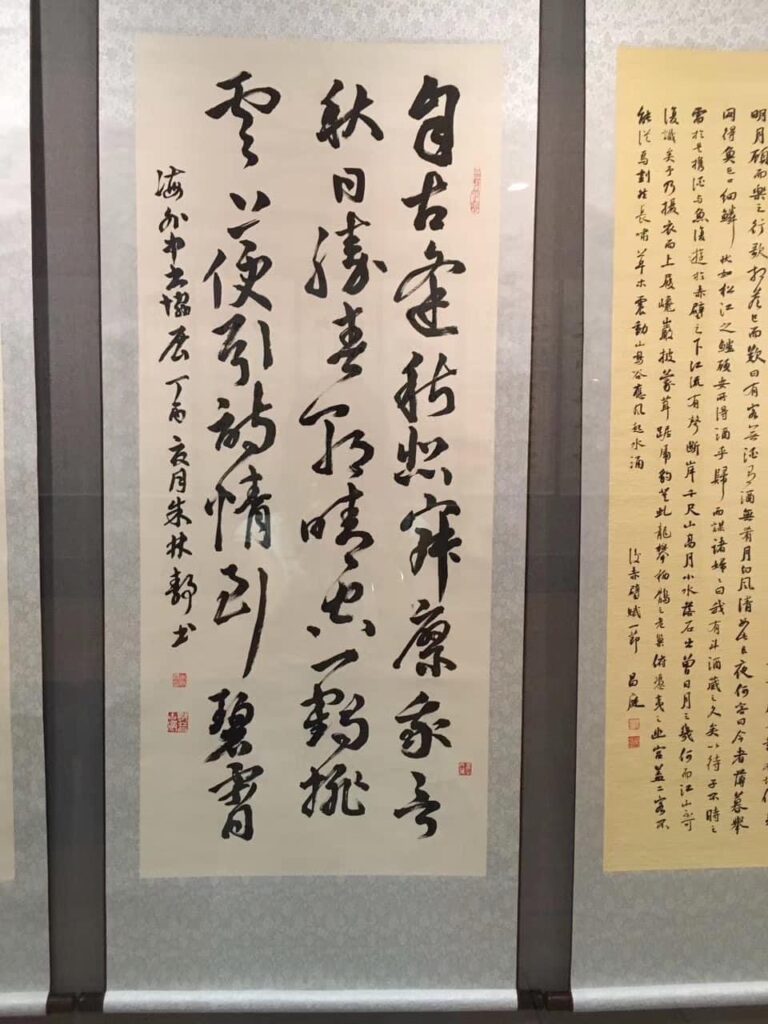 明月顧而樂之行歌相答已而歎曰有客無酒有酒無肴月白風清如此良夜何客曰今者薄暮舉
网得魚巨口細鱗狀如松江之鱸顧安所得酒乎歸而謀諸婦婦曰我有斗酒藏之久矣以待子不時之
需於是攜酒與魚復遊於赤壁之下江流有聲斷岸千尺山高月小水落石出曾日月之幾何而江山不可
復識矣予乃攝衣而上履巉巖披蒙茸踞虎豹登虬龍攀栖鶻之危巢俯馮夷之幽宮蓋二客不
能從焉劃然長嘯草木震動山鳴谷應風起水涌
後赤壁賦一節
自古逢秋悲寂寥我言
秋日勝春朝晴空一鶴排
雲上便引詩情到碧霄
海外中書協展丁酉月朱林靜書